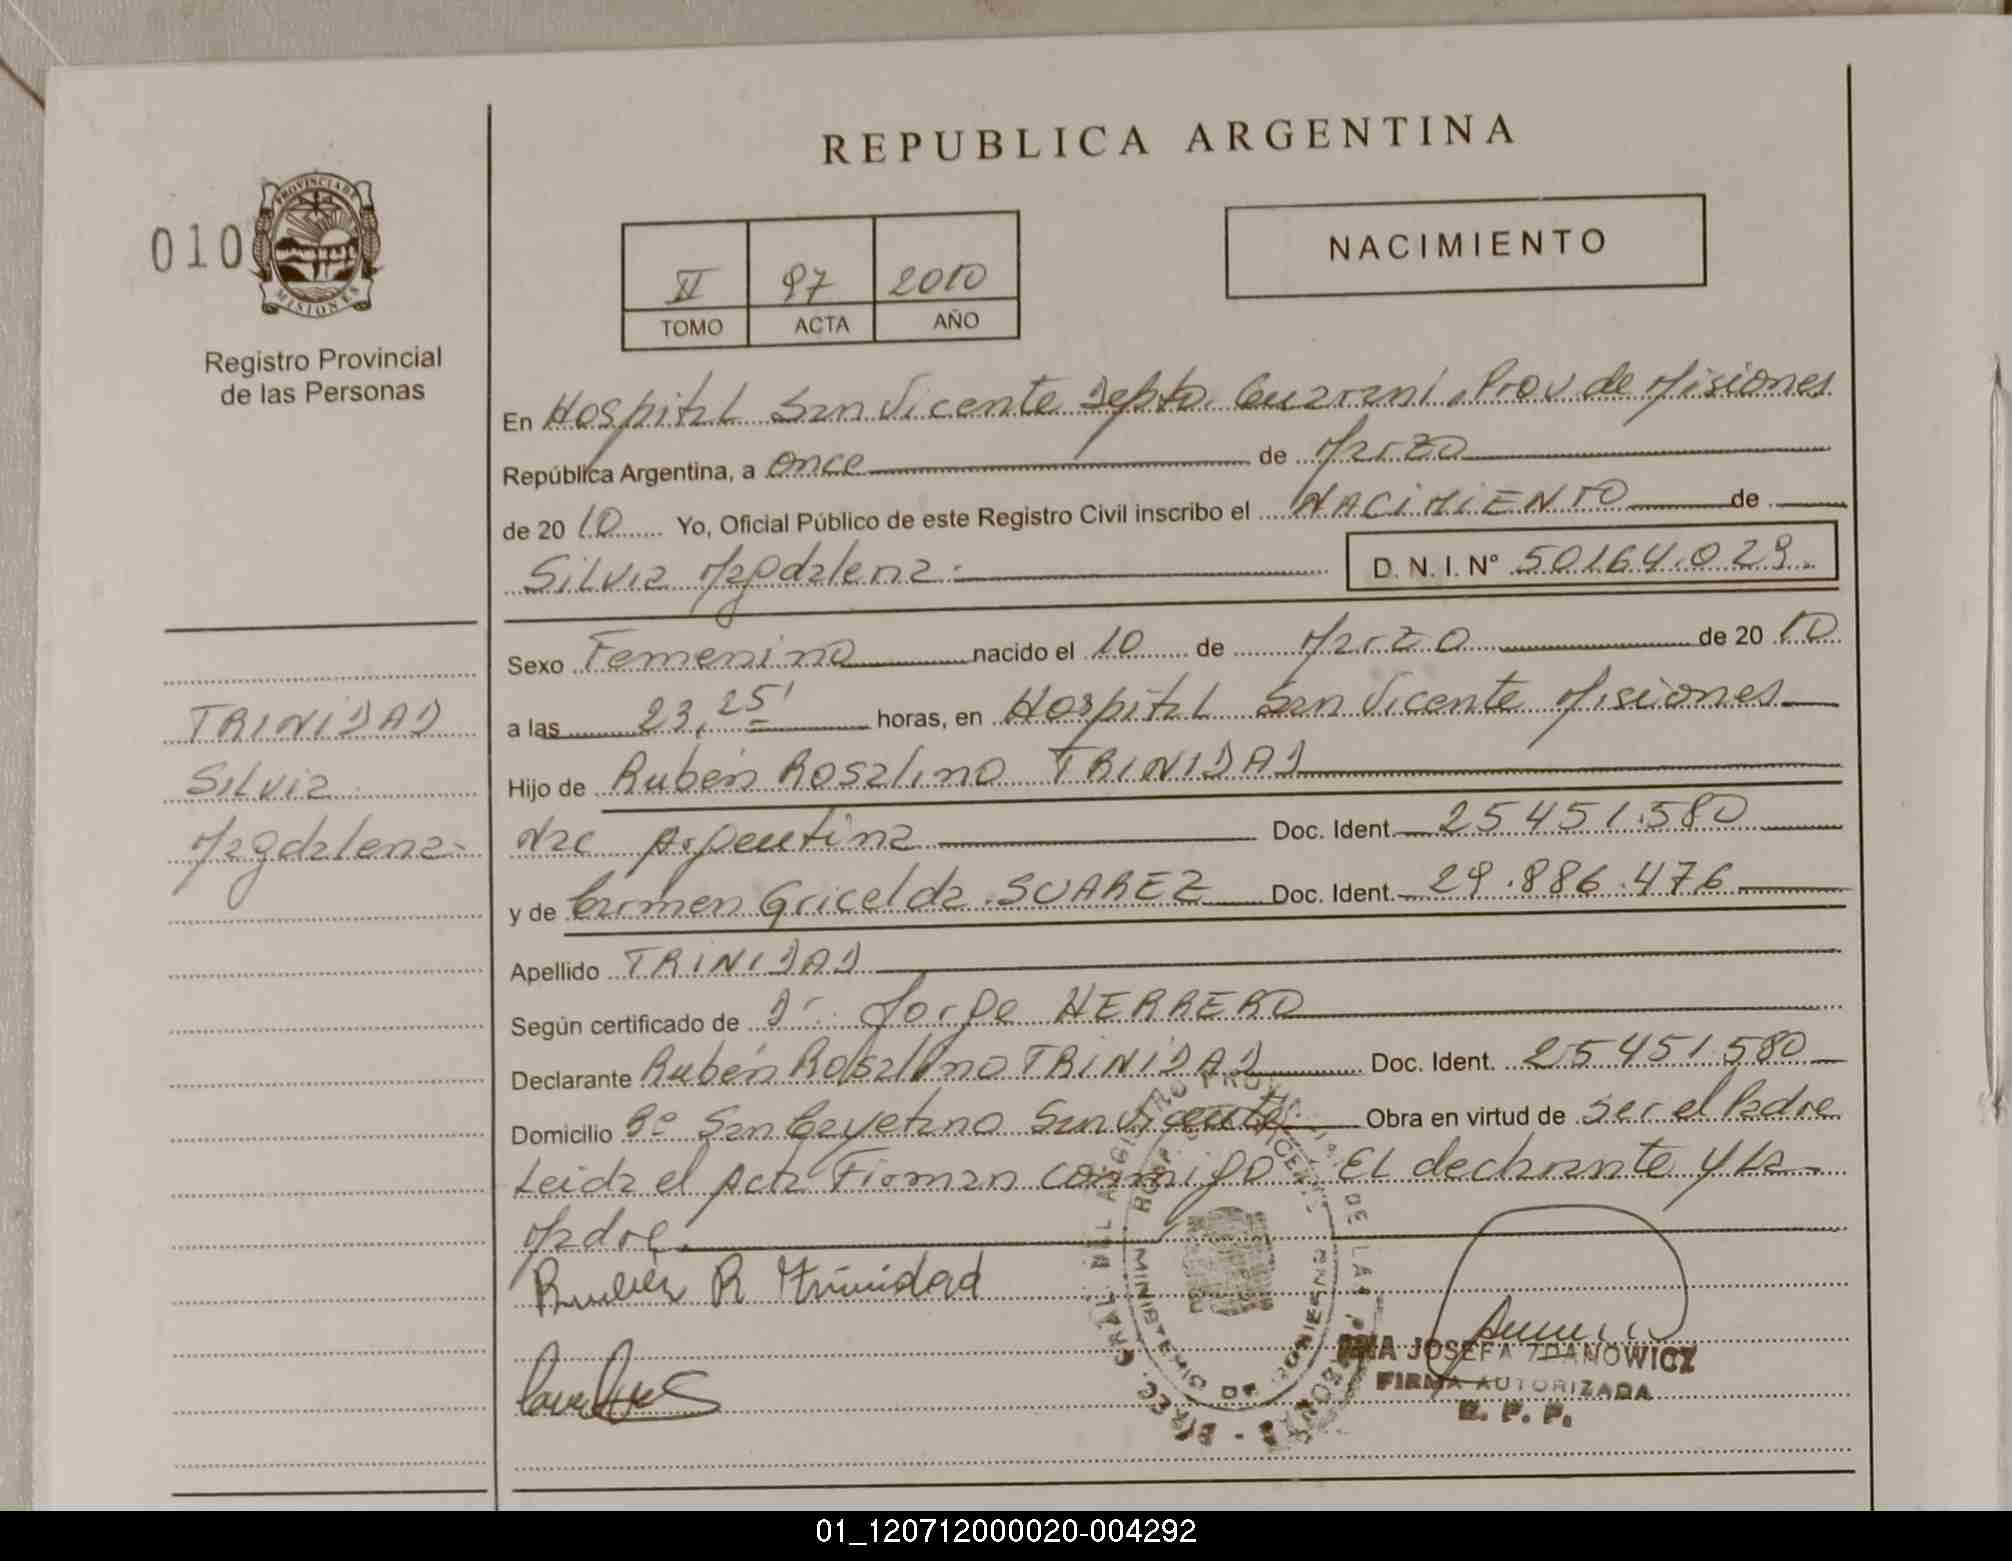 REPUBLICA ARGENTINA
010
PROVINCIA DE
MISIONES
Registro Provincial
de las Personas
II 97 2010
TOMO ACTA AÑO
NACIMIENTO
En Hospital San Vicente Depto. Guaraní, Prov de Misiones
República Argentina, a once de Marzo
de 20 10 Yo, Oficial Público de este Registro Civil inscribo el NACIMIENTO de
Silvia Magdalena.- D. N. I. Nº 50164.029.
Sexo Femenino nacido el 10 de Marzo de 20 10
a las 23,25' horas, en Hospital San Vicente Misiones
Hijo de Rubén Rosalino TRINIDAD
Nac Argentina Doc. Ident. 25451.580
y de Carmen Gricelda SUAREZ Doc. Ident. 29.886.476
Apellido TRINIDAD
Según certificado de Dr. Jorge HERRERO
Declarante Rubén Rosalino TRINIDAD Doc. Ident. 25451580
Domicilio Bº San Cayetano San Vicente Obra en virtud de ser el Padre
Leida el Acta Firman conmigo El declarante y La
Madre.
Rubén R Trinidad
TRINIDAD
Silvia
Magdalena-
JOSEFA ZDANOWICZ
FIRMA AUTORIZADA
R. P. P.
01_120712000020-004292